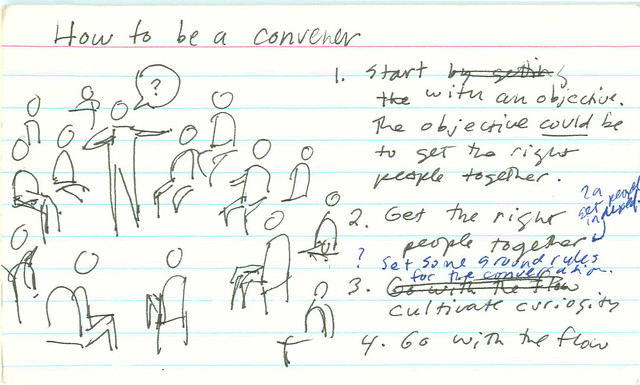 How to be a convener
?
1. Start by getting
the with an objective.
The objective could be
to get the right
people together.
2a
get people
involved.
2. Get the right
people together
? Set some ground rules
for the conversation.
3. Go with the flow
cultivate curiosity
4. Go with the flow